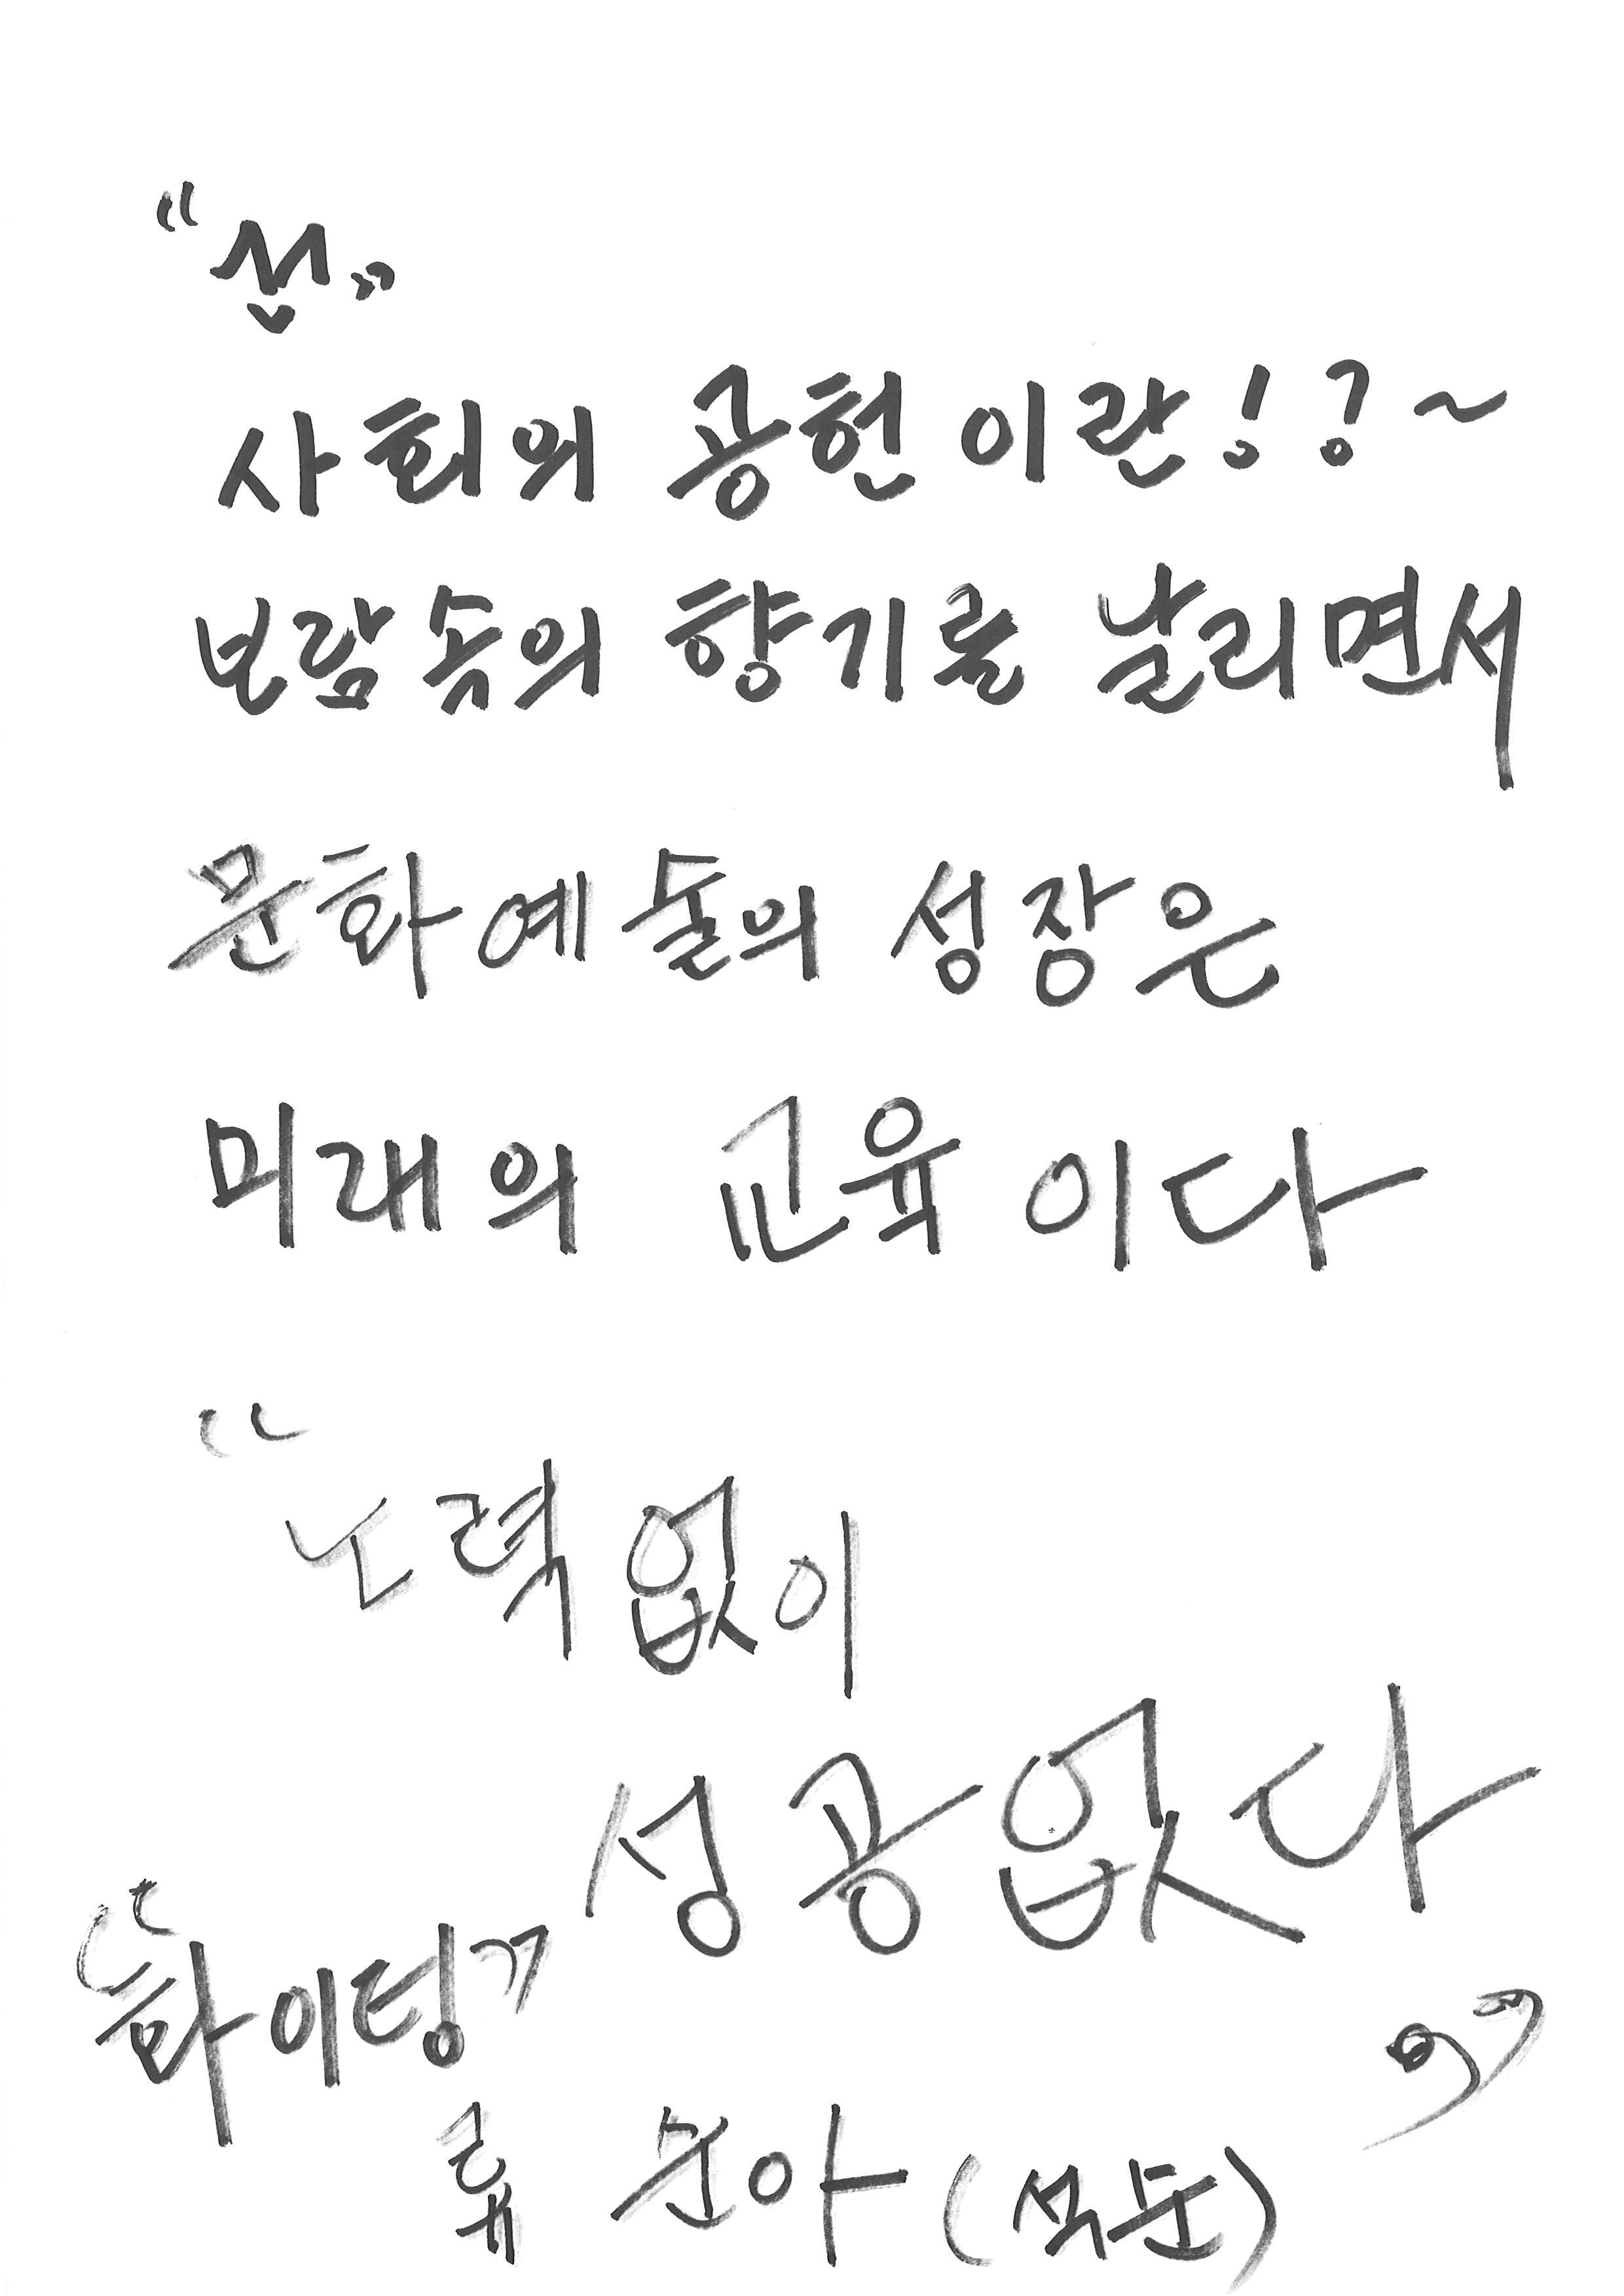 "선"
사회의 공헌이란!?~
보람속의 향기를 날리면서
문화예술의 성장은
미래의 교육이다
"노력없이
성공없다"
"화이팅"
류 순아 (석순)